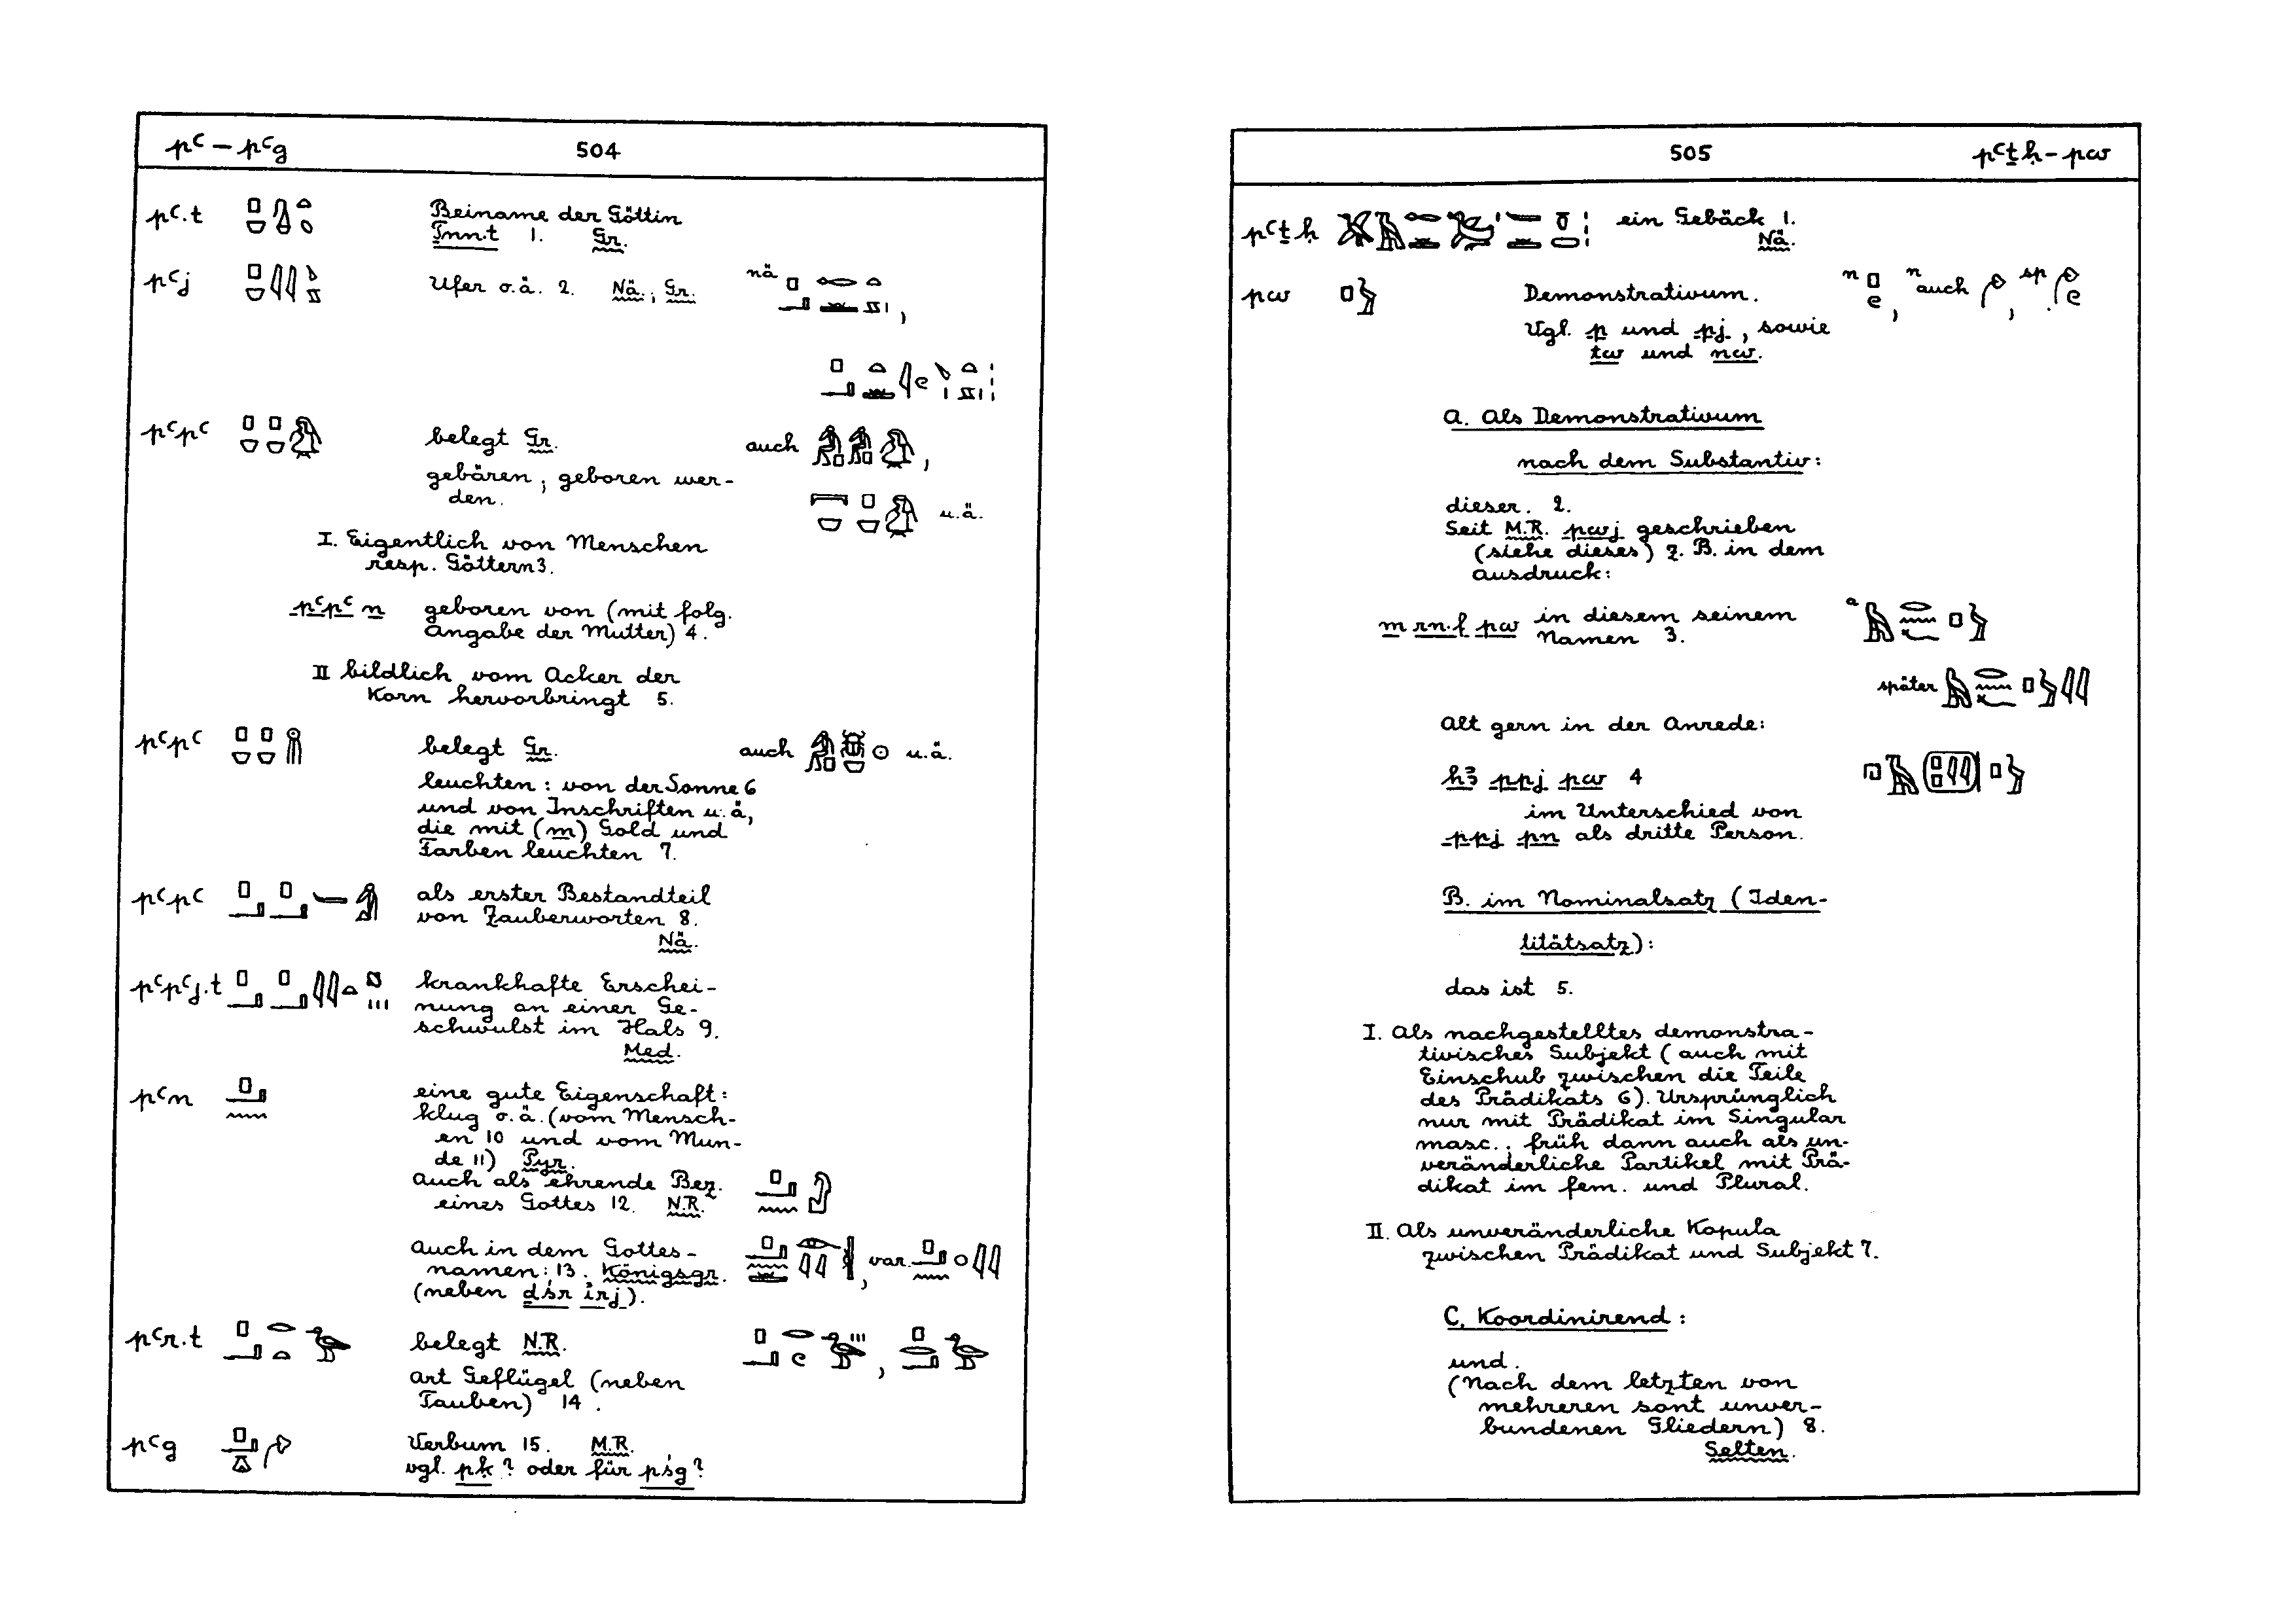 pꜥ – pꜥg 504
pꜥ.t Beiname der Göttin
Ṯnn.t 1. Gr.
pꜥj Ufer o.ä. 2. Nä.; Gr. nä ,
pꜥpꜥ belegt Gr. auch ,
gebären; geboren wer-
den. u.ä.
I. Eigentlich von Menschen
resp. Göttern 3.
pꜥpꜥ n geboren von (mit folg.
Angabe der Mutter) 4.
II bildlich vom Acker der
Korn hervorbringt 5.
pꜥpꜥ belegt Gr. auch u.ä.
leuchten: von der Sonne 6
und von Inschriften u.ä,
die mit (m) Gold und
Farben leuchten 7.
pꜥpꜥ als erster Bestandteil
von Zauberworten 8.
Nä.
pꜥpꜥj.t krankhafte Erschei-
nung an einer Ge-
schwulst im Hals 9.
Med.
pꜥn eine gute Eigenschaft:
klug o.ä. (vom Mensch-
en 10 und vom Mun-
de 11) Pyr.
Auch als ehrende Bez.
eines Gottes 12. N.R.
Auch in dem Gottes-
namen: 13. Königsgr. , var.
(neben dśr irj).
pꜥr.t belegt N.R. ,
Art Geflügel (neben
Tauben) 14.
pꜥg Verbum 15. M.R.
vgl. pḳ? oder für pśg?
505 pꜥṯḥ – pw
pꜥṯḥ ein Gebäck 1.
Nä.
pw Demonstrativum. n , n auch , sp .
Vgl. p und pj, sowie
tw und nw.
A. Als Demonstrativum
nach dem Substantiv:
dieser. 2.
Seit M.R. pwj geschrieben
(siehe dieses) z. B. in dem
Ausdruck:
m rn.f pw in diesem seinem a
Namen 3.
später
Alt gern in der Anrede:
hꜣ ppj pw 4
im Unterschied von
ppj pn als dritte Person.
B. im Nominalsatz (Iden-
titätsatz):
das ist 5.
I. Als nachgestelltes demonstra-
tivisches Subjekt (auch mit
Einschub zwischen die Teile
des Prädikats 6). Ursprünglich
nur mit Prädikat im Singular
masc.; früh dann auch als un-
veränderliche Partikel mit Prä-
dikat im fem. und Plural.
II. Als unveränderliche Kopula
zwischen Prädikat und Subjekt 7.
C. Koordinirend:
und.
(Nach dem letzten von
mehreren sont unver-
bundenen Gliedern) 8.
Selten.